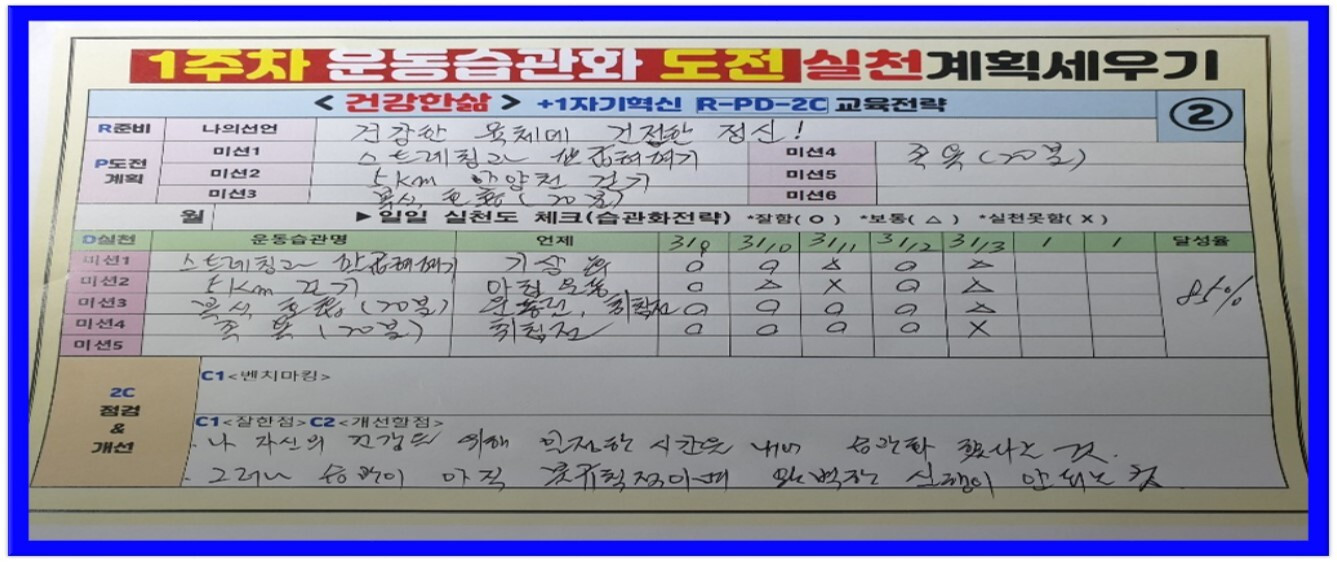 1주차 운동습관화 도전 실천계획세우기
< 건강한삶 > +1자기혁신 R-PD-2C 교육전략 ②
R준비 나의선언 건강한 육체에 건전한 정신!
P도전 계획 미션1 스트레칭과 미션4 족욕(20분)
미션2 5km 안양천 걷기 미션5
미션3 복식 호흡(20분) 미션6
월 ▶일일 실천도 체크(습관화전략) *잘함(O) *보통(△) *실천못함(X)
D실천 운동습관명 언제 3/9 3/10 3/11 3/12 3/13 / / 달성율
미션1 스트레칭과 기상 후 O O △ O △
미션2 5km 걷기 아침 운동 O △ X O △
미션3 복식 호흡(20분) 운동전, 취침전 O O O O △
미션4 족욕(20분) 취침전 O O O O X
85%
미션5
2C 점검 & 개선
C1<벤치마킹>
C1<잘한점> C2<개선할점>
· 나 자신의 건강을 위해 일정한 시간을 내어 습관화 했다는 것.
· 그러나 습관이 아직 불규칙적이며 완벽한 실행이 안되는 것